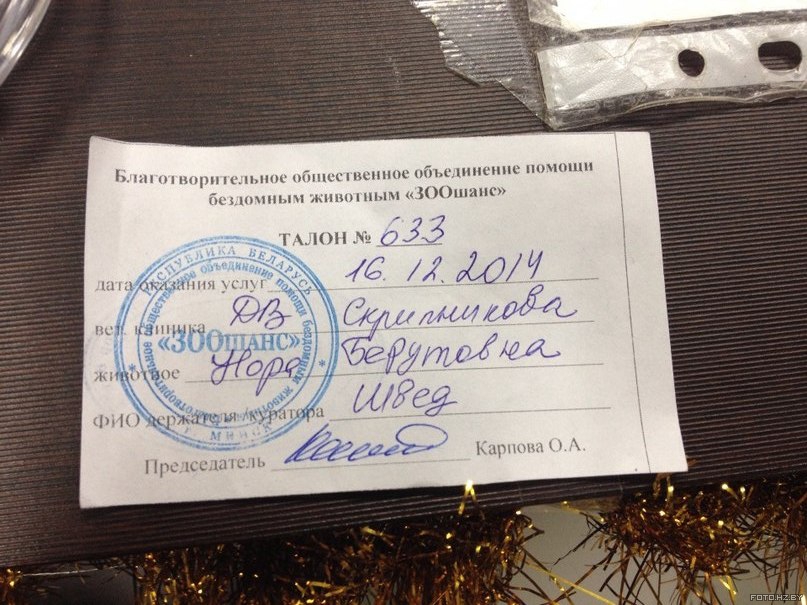 Благотворительное общественное объединение помощи
бездомным животным «ЗООшанс»
ТАЛОН № 633
дата оказания услуг 16.12.2014
вет. клиника ДВ Скрипникова
животное Нора Берутовна
ФИО держателя/куратора Швед
Председатель Карпова О.А.
РЕСПУБЛИКА БЕЛАРУСЬ
Благотворительное общественное объединение помощи бездомным животным
«ЗООшанс»
г. МИНСК
FOTO.HZ.BY